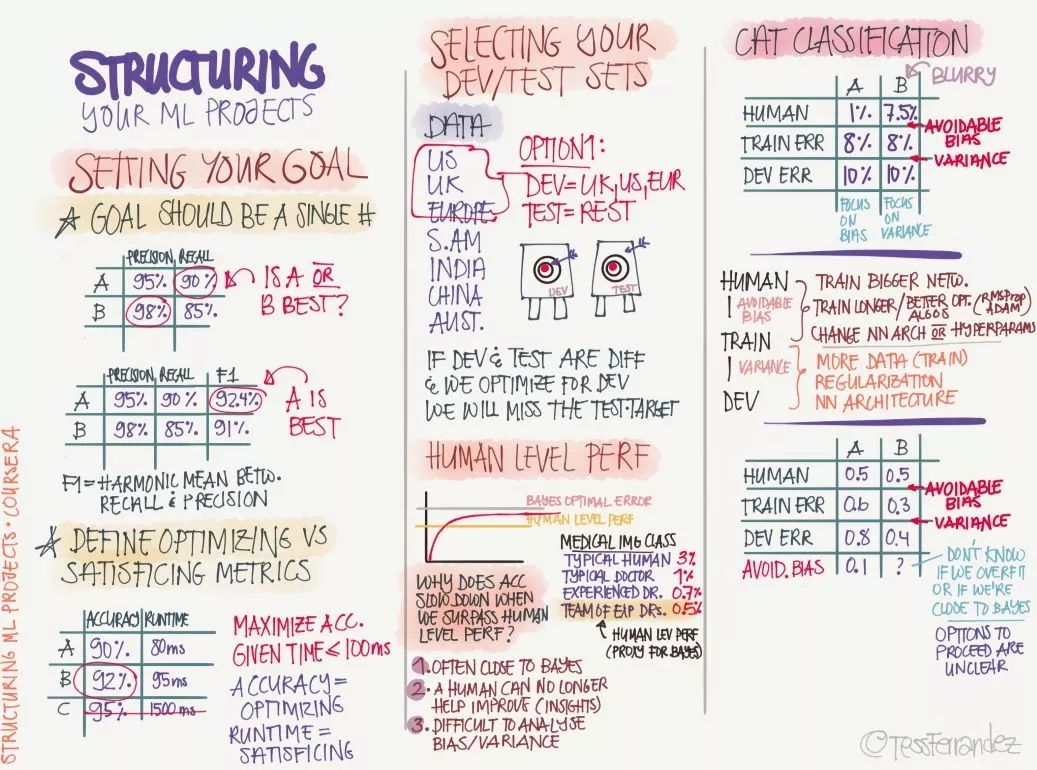 STRUCTURING
YOUR ML PROJECTS
SETTING YOUR GOAL
GOAL SHOULD BE A SINGLE #
PRECISION RECALL
A 95% 90%
B 98% 85%
IS A OR
B BEST?
PRECISION RECALL F1
A 95% 90% 92.4%
B 98% 85% 91%
A IS
BEST
F1 = HARMONIC MEAN BETW.
RECALL & PRECISION
DEFINE OPTIMIZING VS
SATISFICING METRICS
ACCURACY RUNTIME
A 90% 80ms
B 92% 95ms
C 95% 1500 ms
MAXIMIZE ACC.
GIVEN TIME ≤ 100ms
ACCURACY =
OPTIMIZING
RUNTIME =
SATISFICING
STRUCTURING ML PROJECTS · COURSERA
SELECTING YOUR
DEV/TEST SETS
DATA
US
UK
EUROPE
S.AM
INDIA
CHINA
AUST.
OPTION1:
DEV = UK, US, EUR
TEST = REST
DEV
TEST
IF DEV & TEST ARE DIFF
& WE OPTIMIZE FOR DEV
WE WILL MISS THE TEST-TARGET
HUMAN LEVEL PERF
BAYES OPTIMAL ERROR
HUMAN LEVEL PERF
MEDICAL IMG CLASS
TYPICAL HUMAN 3%
TYPICAL DOCTOR 1%
EXPERIENCED DR. 0.7%
TEAM OF EXP DRS. 0.5%
HUMAN LEV PERF
(PROXY FOR BAYES)
WHY DOES ACC
SLOW DOWN WHEN
WE SURPASS HUMAN
LEVEL PERF?
1. OFTEN CLOSE TO BAYES
2. A HUMAN CAN NO LONGER
HELP IMPROVE (INSIGHTS)
3. DIFFICULT TO ANALYSE
BIAS/VARIANCE
CAT CLASSIFICATION
BLURRY
A B
HUMAN 1% 7.5%
TRAIN ERR 8% 8%
DEV ERR 10% 10%
AVOIDABLE
BIAS
VARIANCE
FOCUS
ON
BIAS
FOCUS
ON
VARIANCE
HUMAN
AVOIDABLE
BIAS
TRAIN
VARIANCE
DEV
TRAIN BIGGER NETW.
TRAIN LONGER/BETTER OPT. ALGOS (RMSProp ADAM)
CHANGE NN ARCH OR HYPERPARAMS
MORE DATA (TRAIN)
REGULARIZATION
NN ARCHITECTURE
A B
HUMAN 0.5 0.5
TRAIN ERR 0.6 0.3
DEV ERR 0.8 0.4
AVOID. BIAS 0.1 ?
AVOIDABLE
BIAS
VARIANCE
DON'T KNOW
IF WE OVERFIT
OR IF WE'RE
CLOSE TO BAYES
OPTIONS TO
PROCEED ARE
UNCLEAR
@TessFerrandez